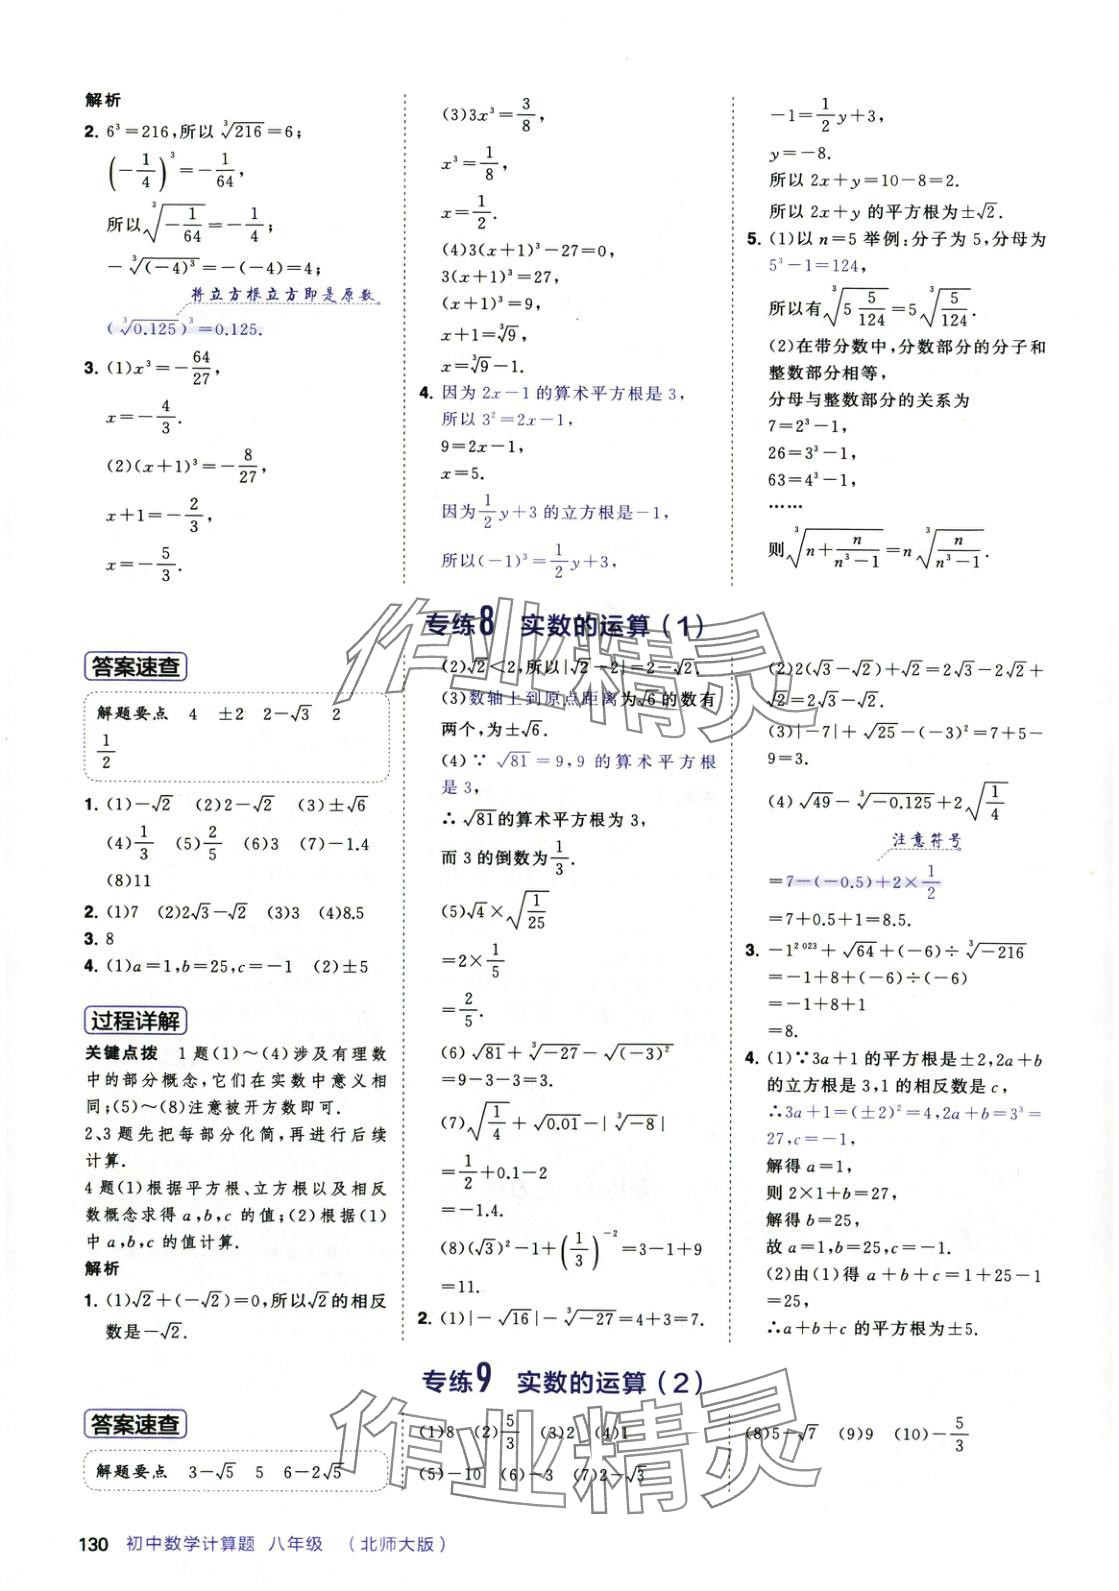 解析
2. 6³=216,所以∛216=6;
(-1/4)³=-1/64,
所以∛(-1/64)=-1/4;
-∛(-4)³=-(-4)=4;
将立方根立方即是原数
(∛0.125)³=0.125.
3. (1)x³=-64/27,
x=-4/3.
(2)(x+1)³=-8/27,
x+1=-2/3,
x=-5/3.
(3)3x³=3/8,
x³=1/8,
x=1/2.
(4)3(x+1)³-27=0,
3(x+1)³=27,
(x+1)³=9,
x+1=∛9,
x=∛9-1.
4. 因为2x-1的算术平方根是3,
所以3²=2x-1,
9=2x-1,
x=5.
因为1/2y+3的立方根是-1,
所以(-1)³=1/2y+3,
-1=1/2y+3,
y=-8.
所以2x+y=10-8=2.
所以2x+y的平方根为±√2.
5. (1)以n=5举例:分子为5,分母为
5³-1=124,
所以有∛(5 5/124)=5∛(5/124).
(2)在带分数中,分数部分的分子和
整数部分相等,
分母与整数部分的关系为
7=2³-1,
26=3³-1,
63=4³-1,
……
则∛(n+n/(n³-1))=n∛(n/(n³-1)).
专练8 实数的运算(1)
答案速查
解题要点 4 ±2 2-√3 2
1/2
1. (1)-√2 (2)2-√2 (3)±√6
(4)1/3 (5)2/5 (6)3 (7)-1.4
(8)11
2. (1)7 (2)2√3-√2 (3)3 (4)8.5
3. 8
4. (1)a=1,b=25,c=-1 (2)±5
过程详解
关键点拨 1题(1)~(4)涉及有理数
中的部分概念,它们在实数中意义相
同;(5)~(8)注意被开方数即可.
2、3题先把每部分化简,再进行后续
计算.
4题(1)根据平方根、立方根以及相反
数概念求得a,b,c的值;(2)根据(1)
中a,b,c的值计算.
解析
1. (1)√2+(-√2)=0,所以√2的相反
数是-√2.
(2)√2<2,所以|√2-2|=2-√2.
(3)数轴上到原点距离为√6的数有
两个,为±√6.
(4)∵√81=9,9的算术平方根
是3,
∴√81的算术平方根为3,
而3的倒数为1/3.
(5)√4×√(1/25)
=2×1/5
=2/5.
(6)√81+∛-27-√(-3)²
=9-3-3=3.
(7)√(1/4)+√0.01-|∛-8|
=1/2+0.1-2
=-1.4.
(8)(√3)²-1+(1/3)⁻²=3-1+9
=11.
2. (1)|-√16|-∛-27=4+3=7.
(2)2(√3-√2)+√2=2√3-2√2+
√2=2√3-√2.
(3)|-7|+√25-(-3)²=7+5-
9=3.
(4)√49-∛-0.125+2√(1/4)
注意符号
=7-(-0.5)+2×1/2
=7+0.5+1=8.5.
3. -1²⁰²³+√64+(-6)÷∛-216
=-1+8+(-6)÷(-6)
=-1+8+1
=8.
4. (1)∵3a+1的平方根是±2,2a+b
的立方根是3,1的相反数是c,
∴3a+1=(±2)²=4,2a+b=3³=
27,c=-1,
解得a=1,
则2×1+b=27,
解得b=25,
故a=1,b=25,c=-1.
(2)由(1)得a+b+c=1+25-1
=25,
∴a+b+c的平方根为±5.
作业精灵
专练9 实数的运算(2)
答案速查
解题要点 3-√5 5 6-2√5
(1)8 (2)5/3 (3)2 (4)1
(5)-10 (6)-3 (7)2-√3
(8)5-√7 (9)9 (10)-5/3
作业精灵
130 初中数学计算题 八年级 (北师大版)